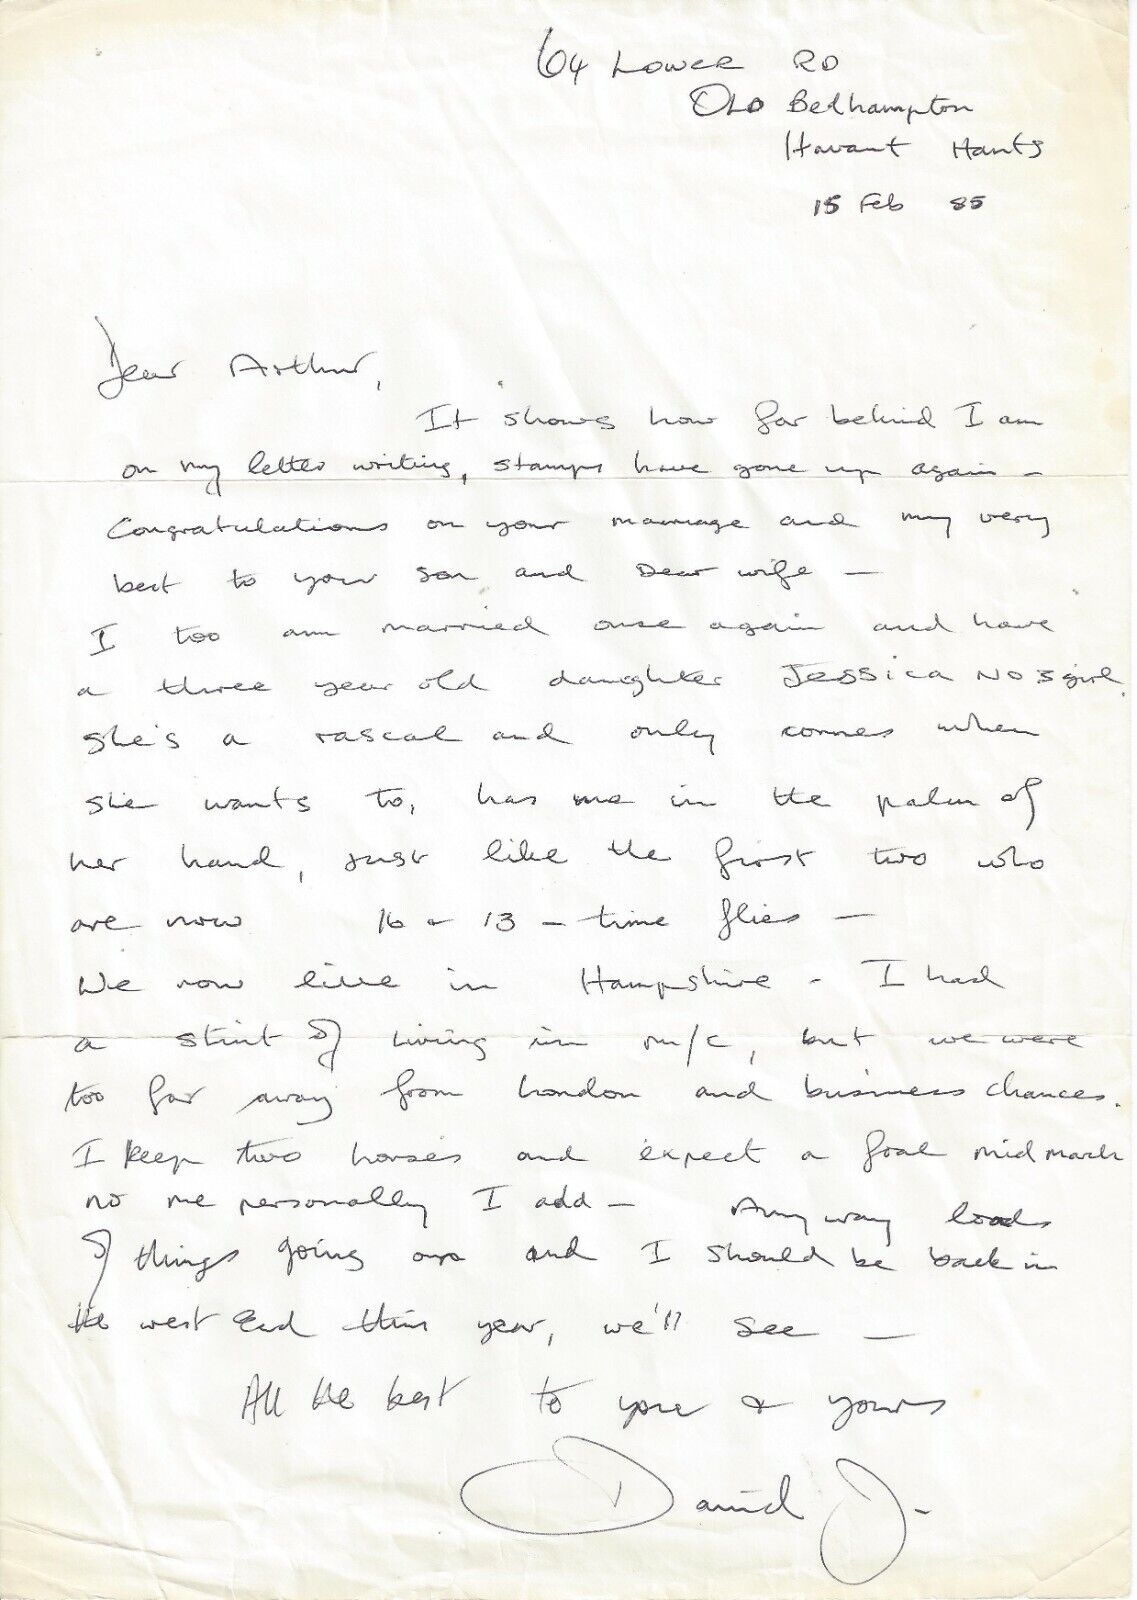 64 Lower RD
OLD Bedhampton
Havant Hants
15 Feb 85
Dear Arthur,
It shows how far behind I am
on my letter writing, stamps have gone up again –
Congratulations on your marriage and my very
best to your son and Dear wife –
I too am married once again and have
a three year old daughter Jessica No 3 girl.
She's a rascal and only comes when
she wants to, has me in the palm of
her hand, just like the first two who
are now 16 & 13 – time flies –
We now live in Hampshire – I had
a stint of living in M/C, but we were
too far away from London and business chances.
I keep two horses and expect a foal mid march
no me personally I add – Anyway loads
of things going and I should be back in
the west End this year, we'll see –
All the best to you & yours
David J –